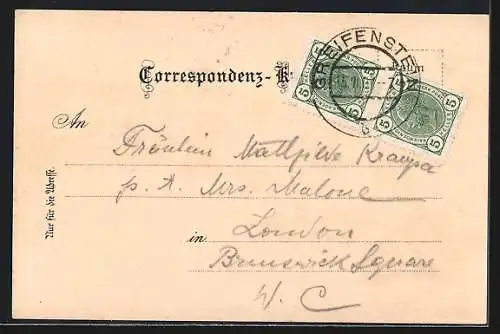 Correspondenz-K
GREIFENSTEIN
5 5
5 5
An
Fräulein Mathilde Krampa
p. A. Mrs. Malone
London
in
Brunswick Square
W. C
Nur für die Adresse.